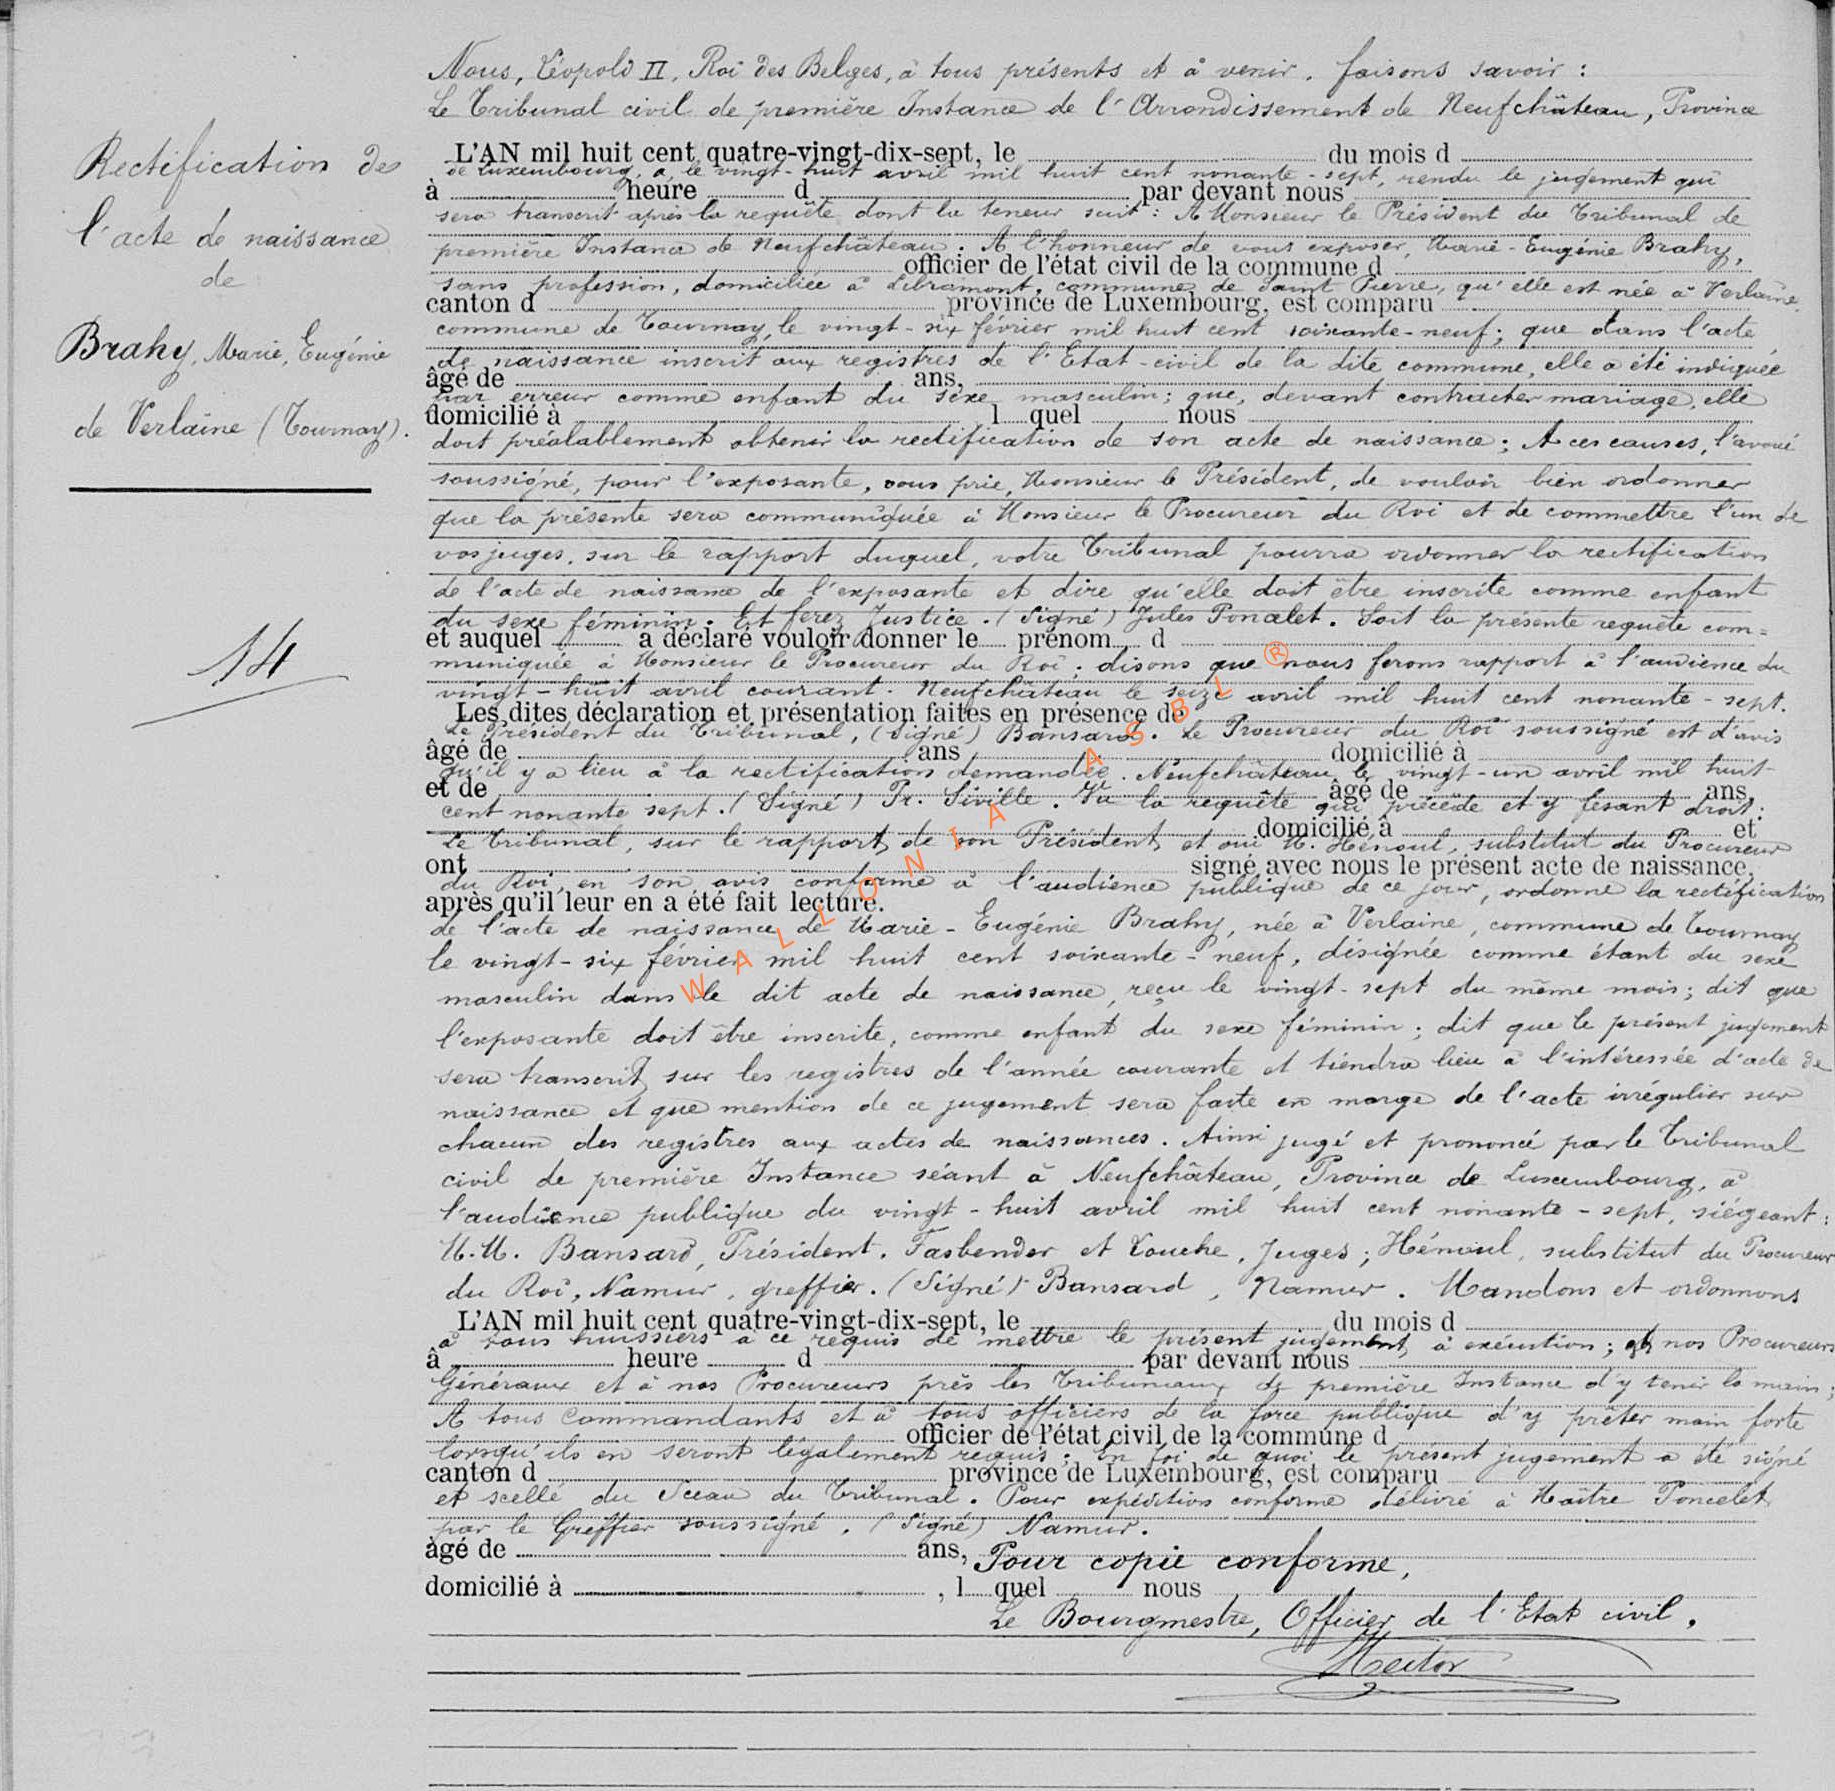 Nous, Léopold II, Roi des Belges, à tous présents et à venir, faisons savoir :
Le Tribunal civil de première Instance de l'Arrondissement de Neufchâteau, Province
Rectification de
l'acte de naissance
de
Brahy, Marie, Eugénie
de Verlaine (Tournay).
14
L'AN mil huit cent quatre-vingt-dix-sept, le du mois d
de Luxembourg, a, le vingt-huit avril mil huit cent nonante-sept, rendu le jugement qui
à heure d par devant nous
sera transcrit après la requête dont la teneur suit : A Monsieur le Président du Tribunal de
première Instance de Neufchâteau. A l'honneur de vous exposer, Marie-Eugénie Brahy,
officier de l'état civil de la commune d
sans profession, domiciliée à Libramont, commune de Saint Pierre, qu'elle est née à Verlaine,
canton d province de Luxembourg, est comparu
commune de Tournay, le vingt-six février mil huit cent soixante-neuf; que dans l'acte
de naissance inscrit aux registres de l'Etat-civil de la dite commune, elle a été indiquée
âgé de ans,
par erreur comme enfant du sexe masculin; que, devant contracter mariage, elle
domicilié à l quel nous
doit préalablement obtenir la rectification de son acte de naissance; A ces causes, l'avoué
soussigné, pour l'exposante, vous prie, Monsieur le Président, de vouloir bien ordonner
que la présente sera communiquée à Monsieur le Procureur du Roi et de commettre l'un de
vos juges, sur le rapport duquel, votre Tribunal pourra ordonner la rectification
de l'acte de naissance de l'exposante et dire qu'elle doit être inscrite comme enfant
du sexe féminin. Et ferez Justice. (Signé) Jules Poncelet. Soit la présente requête com=
et auquel a déclaré vouloir donner le prénom d
muniquée à Monsieur le Procureur du Roi; disons que nous ferons rapport à l'audience du
vingt-huit avril courant. Neufchâteau le seize avril mil huit cent nonante-sept.
Les dites déclaration et présentation faites en présence de
Le Président du Tribunal, (Signé) Bansard. Le Procureur du Roi soussigné est d'avis
âgé de ans domicilié à
qu'il y a lieu à la rectification demandée. Neufchâteau, le vingt-un avril mil huit
et de âgé de ans,
cent nonante sept. (Signé) Pr. Siville. Vu la requête qui précède et y fesant droit:
domicilié à et
Le Tribunal, sur le rapport de son Président et ouï M. Hénoul, substitut du Procureur
ont signé avec nous le présent acte de naissance,
du Roi, en son avis conforme à l'audience publique de ce jour, ordonne la rectification
après qu'il leur en a été fait lecture.
de l'acte de naissance de Marie-Eugénie Brahy, née à Verlaine, commune de Tournay
le vingt-six février mil huit cent soixante-neuf, désignée comme étant du sexe
masculin dans le dit acte de naissance, reçu le vingt-sept du même mois; dit que
l'exposante doit être inscrite, comme enfant du sexe féminin; dit que le présent jugement
sera transcrit sur les registres de l'année courante et tiendra lieu à l'intéressée d'acte de
naissance et que mention de ce jugement sera faite en marge de l'acte irrégulier sur
chacun des registres aux actes de naissances. Ainsi jugé et prononcé par le Tribunal
civil de première Instance séant à Neufchâteau, Province de Luxembourg, à
l'audience publique du vingt-huit avril mil huit cent nonante-sept, siégeant:
M.M. Bansard, Président, Fasbender et Louche, Juges; Hénoul, substitut du Procureur
du Roi, Namur, greffier. (Signé) Bansard, Namur. Mandons et ordonnons
L'AN mil huit cent quatre-vingt-dix-sept, le du mois d
à tous huissiers à ce requis de mettre le présent jugement à exécution; à nos Procureurs
à heure d par devant nous
Généraux et à nos Procureurs près les Tribunaux de première Instance d'y tenir la main;
A tous Commandants et à tous officiers de la force publique d'y prêter main forte
officier de l'état civil de la commune d
lorsqu'ils en seront légalement requis; En foi de quoi le présent jugement a été signé
canton d province de Luxembourg, est comparu
et scellé du Sceau du Tribunal. Pour expédition conforme délivré à Maître Poncelet
par le Greffier soussigné. (Signé) Namur.
âgé de ans, Pour copie conforme,
domicilié à , l quel nous
Le Bourgmestre, Officier de l'Etat civil.
WALLONIA ASBL ®